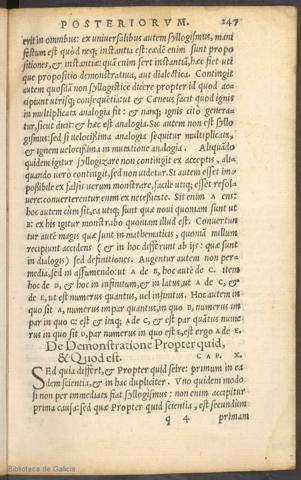 POSTERIORVM. 247
erit in omnibus: ex uniuersalibus autem syllogismus, mani
festum est quòd neq; instantia est: eædē enim sunt propo
sitiones, & instantiæ: quā enim fert instantiā, hæc fiet uti
que propositio demonstratiua, aut dialectica. Contingit
autem quosdā non syllogisticè dicere propter id quod ac-
cipiunt utrisq; consequētia: ut & Cæneus facit quod ignis
in multiplicata analogia sit: & nanq; ignis citò genera-
tur, sicut dicit: & hæc est analogia. Sic autem non est syllo
gismus: sed si uelocissima analogia sequitur multiplicata,
& ignem uelocissima in mutatione analogia. Aliquādo
quidem igitur syllogizare non contingit ex acceptis, ali-
quando uerò contingit, sed non uidetur. Si autem esset im-
possibile ex falsis uerum monstrare, facile utiq; esset resol-
uere: conuerterentur enim ex necessitate. Sit enim A ens:
hoc autem cùm sit, ea utiq; sunt quæ noui quoniam sunt ut
B: ex his igitur monstrabo quoniam illud est. Conuertun
tur autē magis quæ sunt in mathematicis, quoniā nullum
recipiunt accidens (& in hoc differunt ab ijs: quæ sunt
in dialogis) sed definitiones. Augentur autem non per-
media, sed in assumendo: ut A de B, hoc autē de C. item
hoc de D, & hoc in infinitum, & in latus, ut A de C, &
de E, ut est numerus quantus, uel infinitus. Hoc autem in
quo sit A, numerus impar quantus, in quo B, numerus im
par in quo C: est & itaq; A de C, & est par quātus nume
rus in quo sit D, par numerus in quo est E, est ergo A de E.
De Demonstratione Propter quid,
& Quod est. CAP. X.
SEd quia differt, & Propter quid scire: primum in ea
dem scientia, & in hac dupliciter. Vno quidem modo
si non per immediata fiat syllogismus: non enim accipitur
prima causa: sed quæ Propter quid scientia, est secundum
q 4 primam
Biblioteca de Galicia